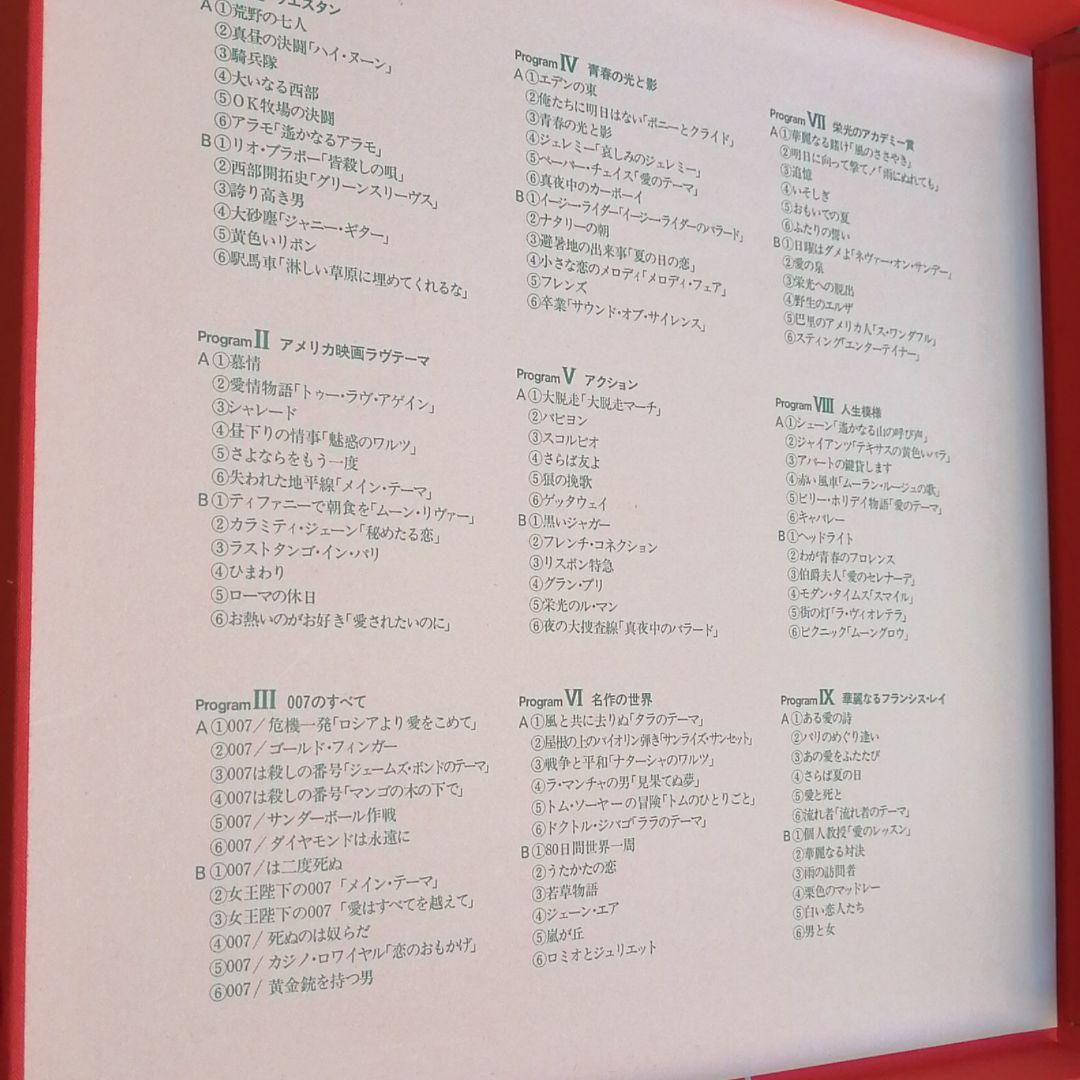 エスタン
A①荒野の七人
②真昼の決闘「ハイ・ヌーン」
③騎兵隊
④大いなる西部
⑤OK牧場の決闘
⑥アラモ「遙かなるアラモ」
B①リオ・ブラボー「皆殺しの唄」
②西部開拓史「グリーンスリーヴス」
③誇り高き男
④大砂塵「ジャニー・ギター」
⑤黄色いリボン
⑥駅馬車「淋しい草原に埋めてくれるな」
Program II アメリカ映画ラヴテーマ
A①慕情
②愛情物語「トゥー・ラヴ・アゲイン」
③シャレード
④昼下りの情事「魅惑のワルツ」
⑤さよならをもう一度
⑥失われた地平線「メイン・テーマ」
B①ティファニーで朝食を「ムーン・リヴァー」
②カラミティ・ジェーン「秘めたる恋」
③ラストタンゴ・イン・パリ
④ひまわり
⑤ローマの休日
⑥お熱いのがお好き「愛されたいのに」
Program III 007のすべて
A①007/危機一発「ロシアより愛をこめて」
②007/ゴールド・フィンガー
③007は殺しの番号「ジェームズ・ボンドのテーマ」
④007は殺しの番号「マンゴの木の下で」
⑤007/サンダーボール作戦
⑥007/ダイヤモンドは永遠に
B①007/は二度死ぬ
②女王陛下の007「メイン・テーマ」
③女王陛下の007「愛はすべてを越えて」
④007/死ぬのは奴らだ
⑤007/カジノ・ロワイヤル「恋のおもかげ」
⑥007/黄金銃を持つ男
Program IV 青春の光と影
A①エデンの東
②俺たちに明日はない「ボニーとクライド」
③青春の光と影
④ジェレミー「哀しみのジェレミー」
⑤ペーパー・チェイス「愛のテーマ」
⑥真夜中のカーボーイ
B①イージー・ライダー「イージー・ライダーのバラード」
②ナタリーの朝
③避暑地の出来事「夏の日の恋」
④小さな恋のメロディ「メロディ・フェア」
⑤フレンズ
⑥卒業「サウンド・オブ・サイレンス」
Program V アクション
A①大脱走「大脱走マーチ」
②パピヨン
③スコルピオ
④さらば友よ
⑤狼の挽歌
⑥ゲッタウェイ
B①黒いジャガー
②フレンチ・コネクション
③リスボン特急
④グラン・プリ
⑤栄光のル・マン
⑥夜の大捜査線「真夜中のバラード」
Program VI 名作の世界
A①風と共に去りぬ「タラのテーマ」
②屋根の上のバイオリン弾き「サンライズ・サンセット」
③戦争と平和「ナターシャのワルツ」
④ラ・マンチャの男「見果てぬ夢」
⑤トム・ソーヤーの冒険「トムのひとりごと」
⑥ドクトル・ジバゴ「ララのテーマ」
B①80日間世界一周
②うたかたの恋
③若草物語
④ジェーン・エア
⑤嵐が丘
⑥ロミオとジュリエット
Program VII 栄光のアカデミー賞
A①華麗なる賭け「風のささやき」
②明日に向って撃て!「雨にぬれても」
③追憶
④いそしぎ
⑤おもいでの夏
⑥ふたりの誓い
B①日曜はダメよ「ネヴァー・オン・サンデー」
②愛の泉
③栄光への脱出
④野生のエルザ
⑤巴里のアメリカ人「ス・ワンダフル」
⑥スティング「エンターテイナー」
Program VIII 人生模様
A①シェーン「遙かなる山の呼び声」
②ジャイアンツ「テキサスの黄色いバラ」
③アパートの鍵貸します
④赤い風車「ムーラン・ルージュの歌」
⑤ビリー・ホリデイ物語「愛のテーマ」
⑥キャバレー
B①ヘッドライト
②わが青春のフロレンス
③伯爵夫人「愛のセレナーデ」
④モダン・タイムス「スマイル」
⑤街の灯「ラ・ヴィオレテラ」
⑥ピクニック「ムーングロウ」
Program IX 華麗なるフランシス・レイ
A①ある愛の詩
②パリのめぐり逢い
③あの愛をふたたび
④さらば夏の日
⑤愛と死と
⑥流れ者「流れ者のテーマ」
B①個人教授「愛のレッスン」
②華麗なる対決
③雨の訪問者
④栗色のマッドレー
⑤白い恋人たち
⑥男と女